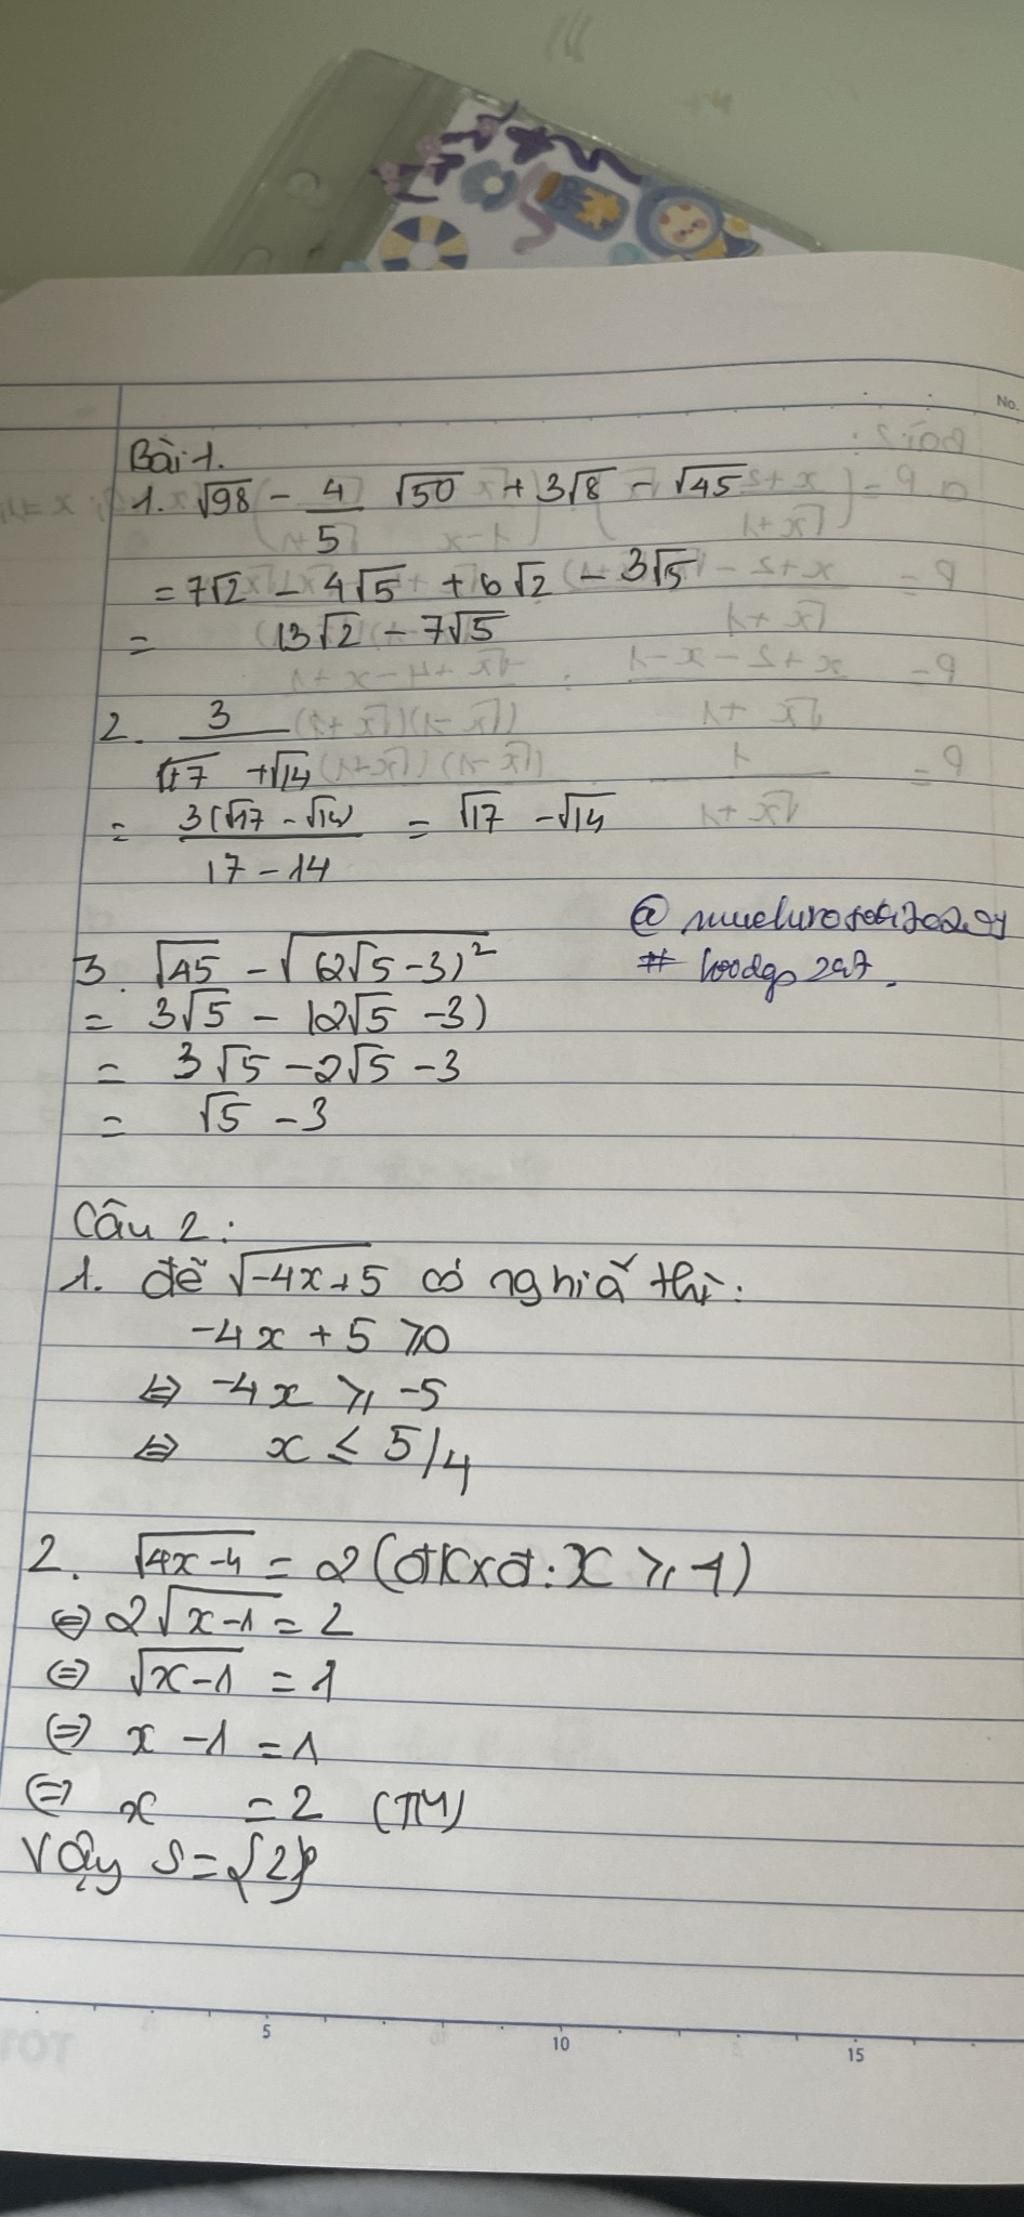 No.
Bài 1.
1. √98 - 4/5 √50 + 3√8 - √45
= 7√2 - 4√5 + 6√2 - 3√5
= 13√2 - 7√5
2. 3/(√17 + √14)
= 3(√17 - √14)/(17 - 14) = √17 - √14
3. √45 - √(2√5 - 3)²
= 3√5 - (2√5 - 3)
= 3√5 - 2√5 - 3
= √5 - 3
Câu 2:
1. để √-4x+5 có nghĩã thì:
-4x + 5 ⩾ 0
⇔ -4x ⩾ -5
⇔ x ≤ 5/4
2. √4x-4 = 2 (đkxđ: x ⩾ 1)
⇔ 2√x-1 = 2
⇔ √x-1 = 1
⇔ x - 1 = 1
⇔ x = 2 (TM)
Vậy S = {2}
5 10 15